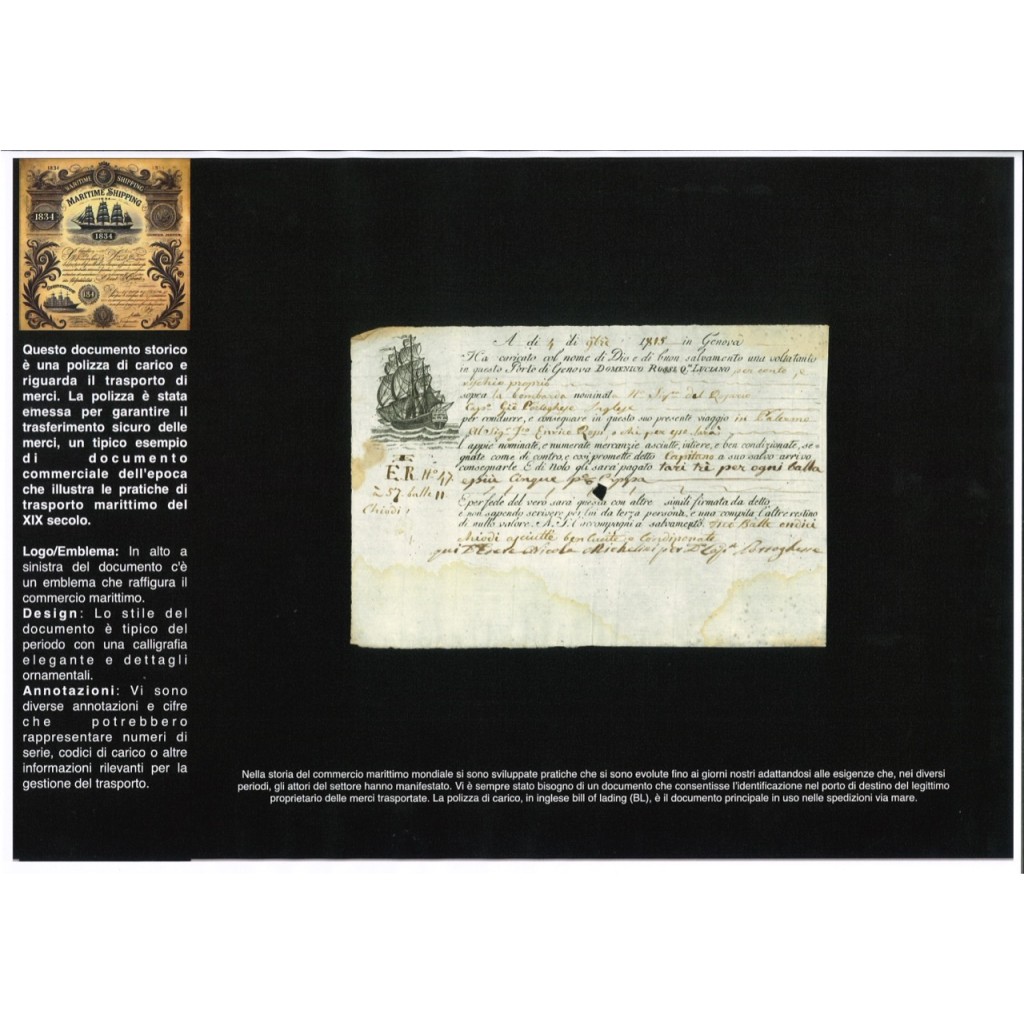 MARITIME SHIPPING
MARITIME SHIPPING
1834
1834
Questo documento storico
è una polizza di carico e
riguarda il trasporto di
merci. La polizza è stata
emessa per garantire il
trasferimento sicuro delle
merci, un tipico esempio
di documento
commerciale dell'epoca
che illustra le pratiche di
trasporto marittimo del
XIX secolo.
Logo/Emblema: In alto a
sinistra del documento c'è
un emblema che raffigura il
commercio marittimo.
Design: Lo stile del
documento è tipico del
periodo con una calligrafia
elegante e dettagli
ornamentali.
Annotazioni: Vi sono
diverse annotazioni e cifre
che potrebbero
rappresentare numeri di
serie, codici di carico o altre
informazioni rilevanti per la
gestione del trasporto.
A dì 4 di 9bre in Genova
Ha caricato col nome di Dio e di buon salvamento una volta tanto
in questo Porto di Genova DOMENICO ROSSI Q.m LUCIANO per conto
sopra la bombarda nominata
Cap.
per condurre, e consegnare in questo suo presente viaggio in Palermo
L'appiè nominate, e numerate mercanzie asciutte, intiere, e ben condizionate, se-
gnate come di contro, e così promette detto Capitano a suo salvo arrivo
consegnarle. E di Nolo gli sarà pagato tarì tre per ogni balla
e più cinque
E.R. N° 47
à 57. balle 11
Chiodi
E per fede del vero sarà questa con altre simili firmata da detto
e non sapendo scrivere per lui da terza persona, e una compita l'altre restino
di nullo valore. A. I. accompagni a salvamento.
Nella storia del commercio marittimo mondiale si sono sviluppate pratiche che si sono evolute fino ai giorni nostri adattandosi alle esigenze che, nei diversi
periodi, gli attori del settore hanno manifestato. Vi è sempre stato bisogno di un documento che consentisse l'identificazione nel porto di destino del legittimo
proprietario delle merci trasportate. La polizza di carico, in inglese bill of lading (BL), è il documento principale in uso nelle spedizioni via mare.